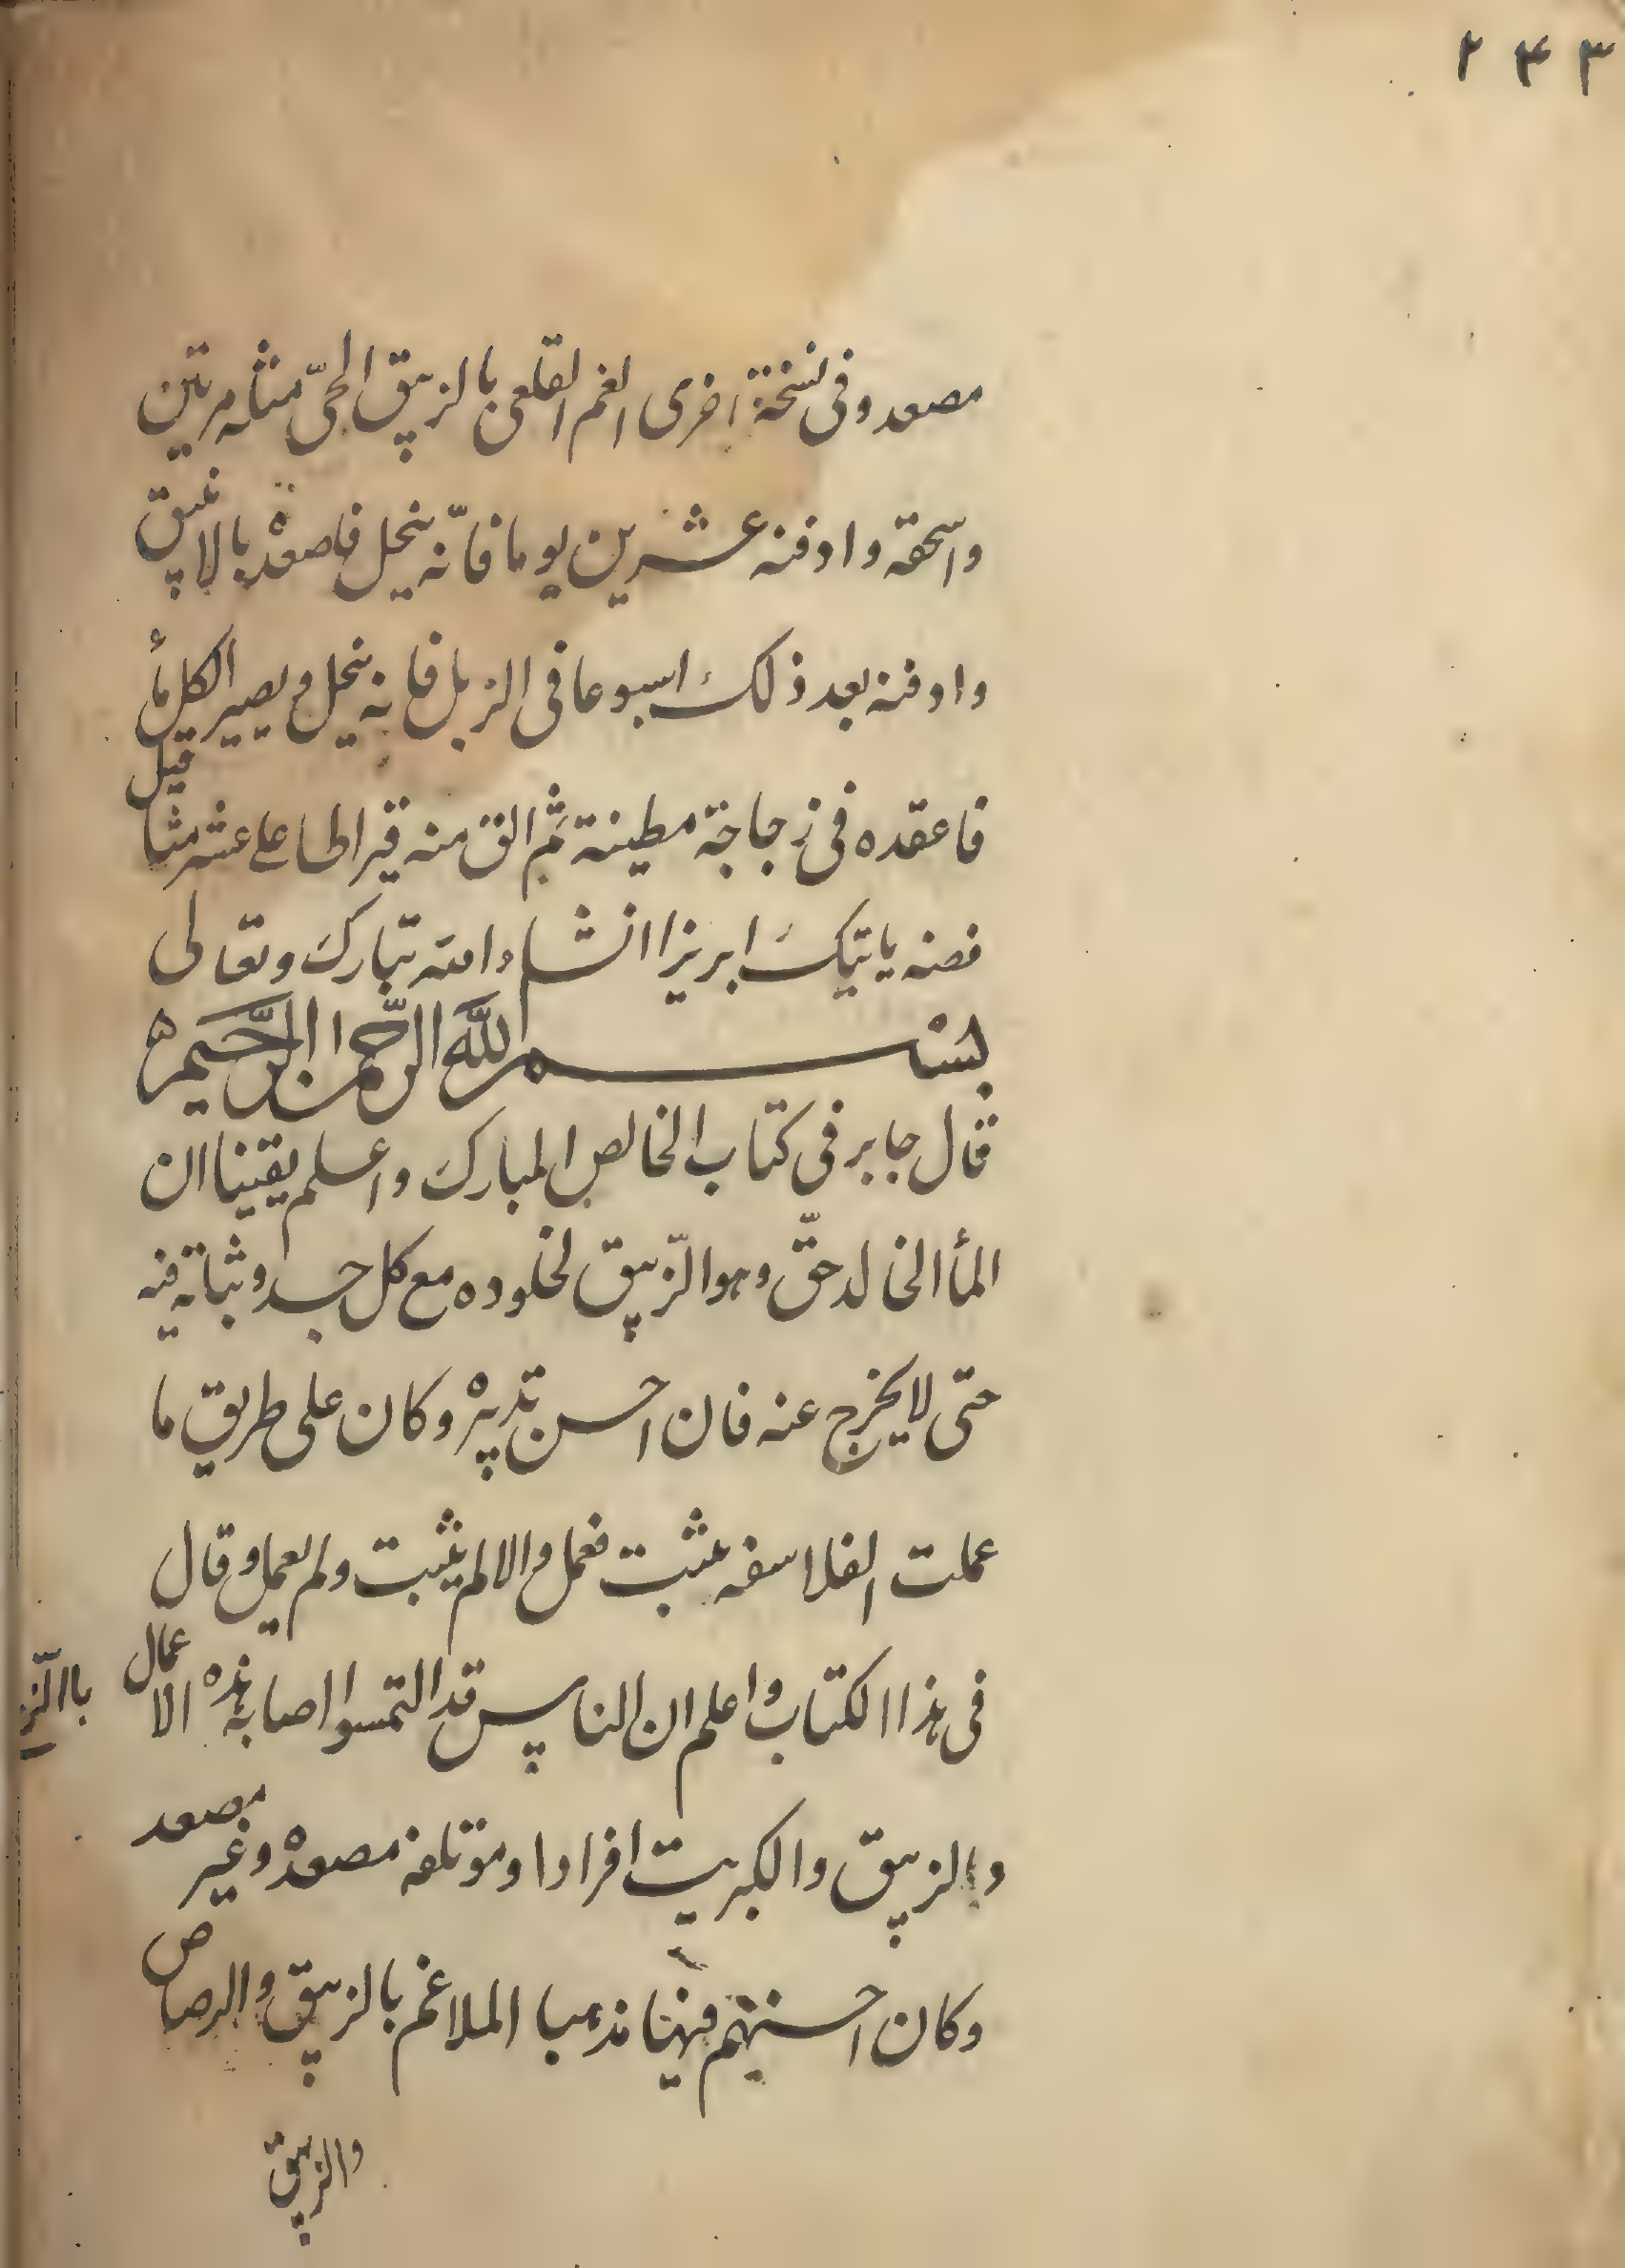 ۲۴۳
مصعد وفی نسخة اخری الغم القلعی بالزیبق الحیّ مثله مرتین
واسحقه وادفنه عشرین یوما فانّه ینحل فاصعدْه بالانبیق
وادفنه بعد ذلک اسبوعا فی الزبل فانه ینحل ویصیر الکل مأ
فاعقده فی زجاجة مطینة ثم الق منه قیراطا علی عشر مثاقیل
فضه یاتیک ابریزا انشاء الله تبارک وتعالی
بسم الله الرحمن الرحیم
قال جابر فی کتاب الخالص المبارک واعلم یقینا ان
المأ الخالد حقّ وهو الزّیبق لخلوده مع کل جسد وثباته فیه
حتی لا یخرج عنه فان احسن تدبیره وکان علی طریق ما
عملت الفلاسفه یثبت فعمل والا لم یثبت ولم یعمل وقال
فی هذا الکتاب واعلم ان الناس قد التمسوا اصابة هذه الاعمال
والزیبق والکبریت افرادا وموتلفه مصعده وغیر مصعد
وکان احسنهم فیها مذهبا الملاغم بالزیبق والرصاص
والزیبق